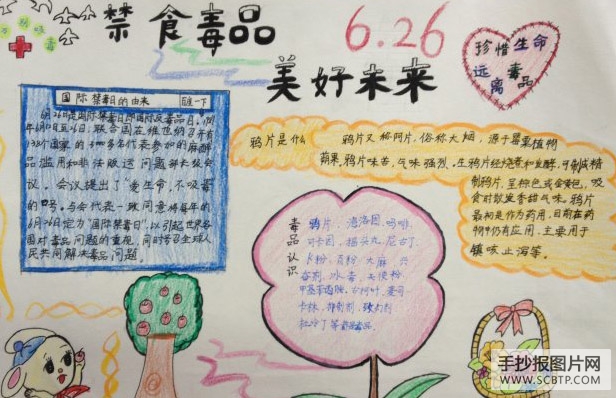 禁食毒品
6.26
美好未来
珍惜生命
远离毒品
国际禁毒日的由来
6月26日是国际禁毒日即国际反毒品日,1987
年6月12日至26日,联合国在维也纳召开有
138个国家的3000多名代表参加的麻醉
品滥用和非法贩运问题部长级会
议。会议提出了"爱生命,不吸毒"的
口号。与会代表一致同意将每年的
6月26日定为"国际禁毒日",以引起世界各
国对毒品问题的重视,同时号召全球人
民共同解决毒品问题。
鸦片是什么
鸦片又称阿片,俗称大烟,源于罂粟植物
蒴果,鸦片味苦,气味强烈。生鸦片经烧煮和发酵,可制成精
制鸦片,呈棕色或金黄色。吸
食时散发香甜气味。鸦片
最初是作为药用,目前在药
物中仍有应用,主要用于
镇咳、止泻等。
毒品认识
鸦片、海洛因、吗啡、
可卡因、摇头丸、尼古丁、
卡粉、贡粉、大麻、兴
奋剂、冰毒、天使粉
杜冷丁等都是毒品。
手抄报图片网
WWW.SCBTP.COM